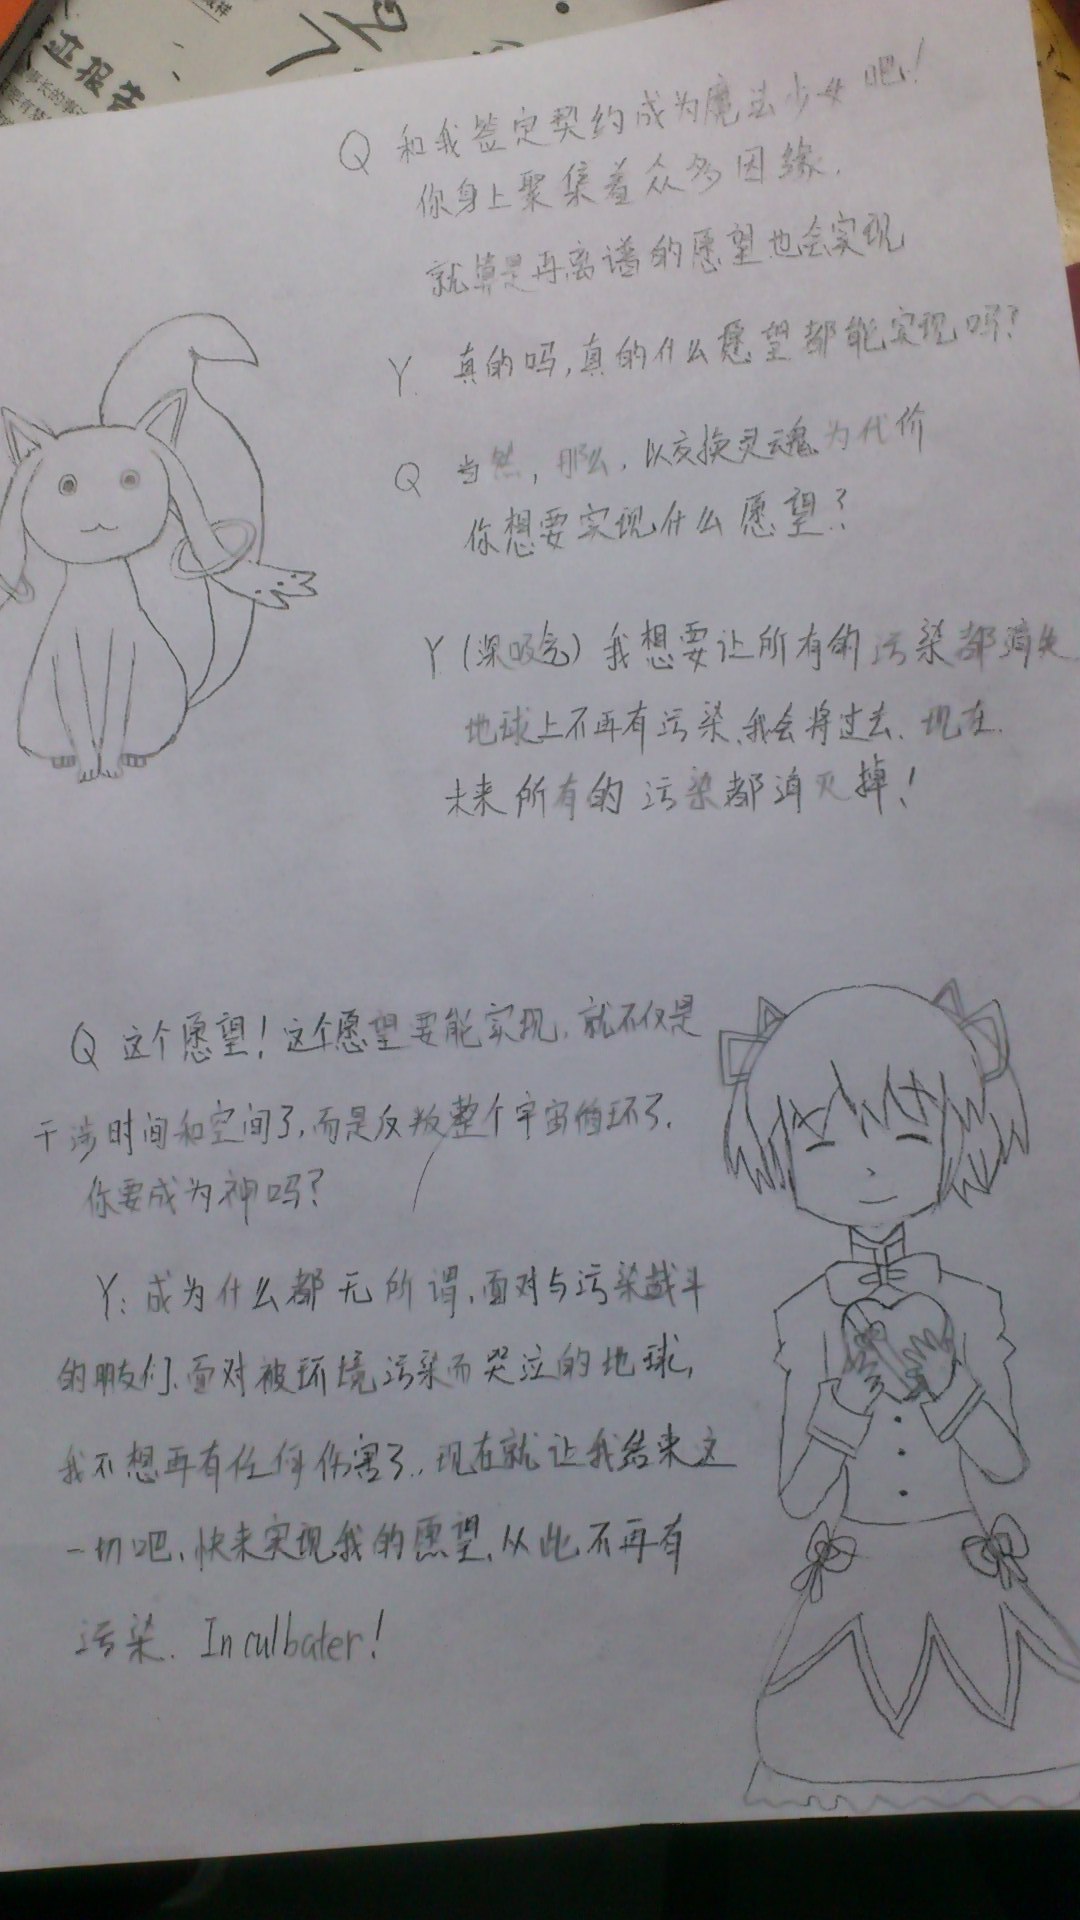 立报告
Q 和我签定契约成为魔法少女吧!
你身上聚集着众多因缘.
就算是再离谱的愿望也会实现
Y. 真的吗,真的什么愿望都能实现吗?
Q 当然,那么,以交换灵魂为代价
你想要实现什么愿望?
Y (深吸气) 我想要让所有的污染都消失
地球上不再有污染、我会将过去、现在.
未来所有的污染都消灭掉!
Q 这个愿望!这个愿望要能实现,就不仅是
干涉时间和空间了,而是反叛整个宇宙循环了.
你要成为神吗?
Y:成为什么都无所谓,面对与污染战斗
的朋友们、面对被环境污染而哭泣的地球,
我不想再有任何伤害了.,现在就让我结束这
一切吧、快来实现我的愿望,从此不再有
污染. Inculbater!